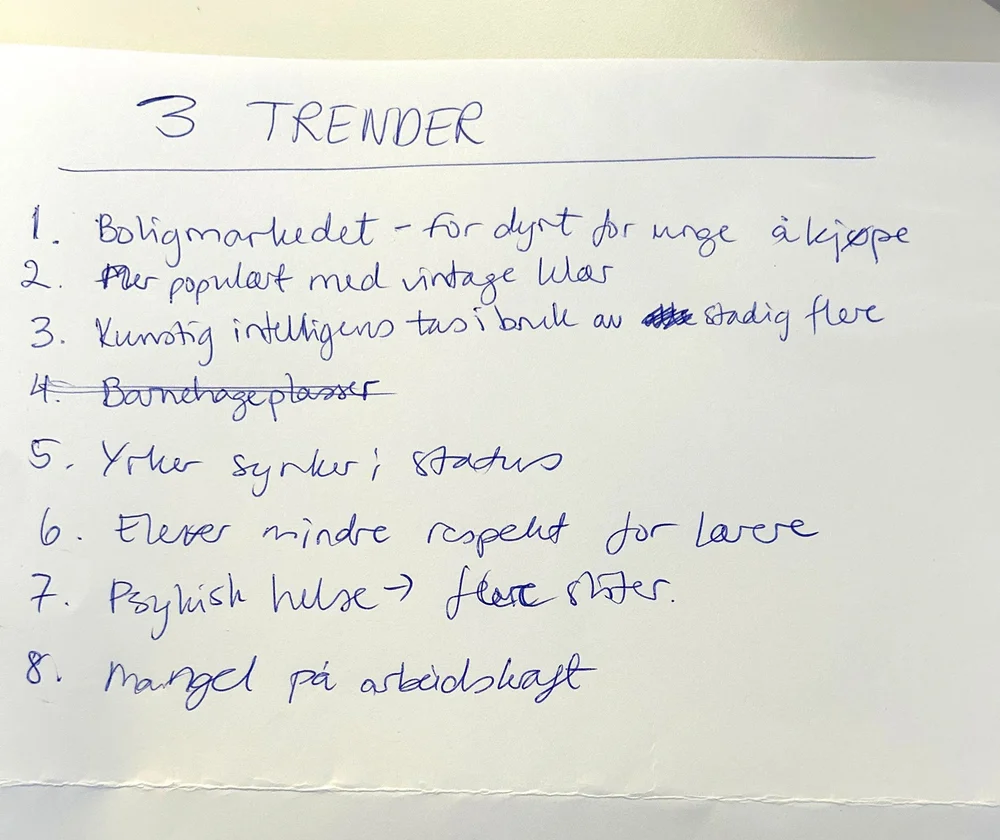 3 TRENDER
1. Boligmarkedet - for dyrt for unge å kjøpe
2. Mer populært med vintage klær
3. Kunstig intelligens tas i bruk av stadig flere
4. Barnehageplasser
5. Yrker synker i status
6. Elever mindre respekt for lærere
7. Psykish helse → flere sliter.
8. Mangel på arbeidskraft